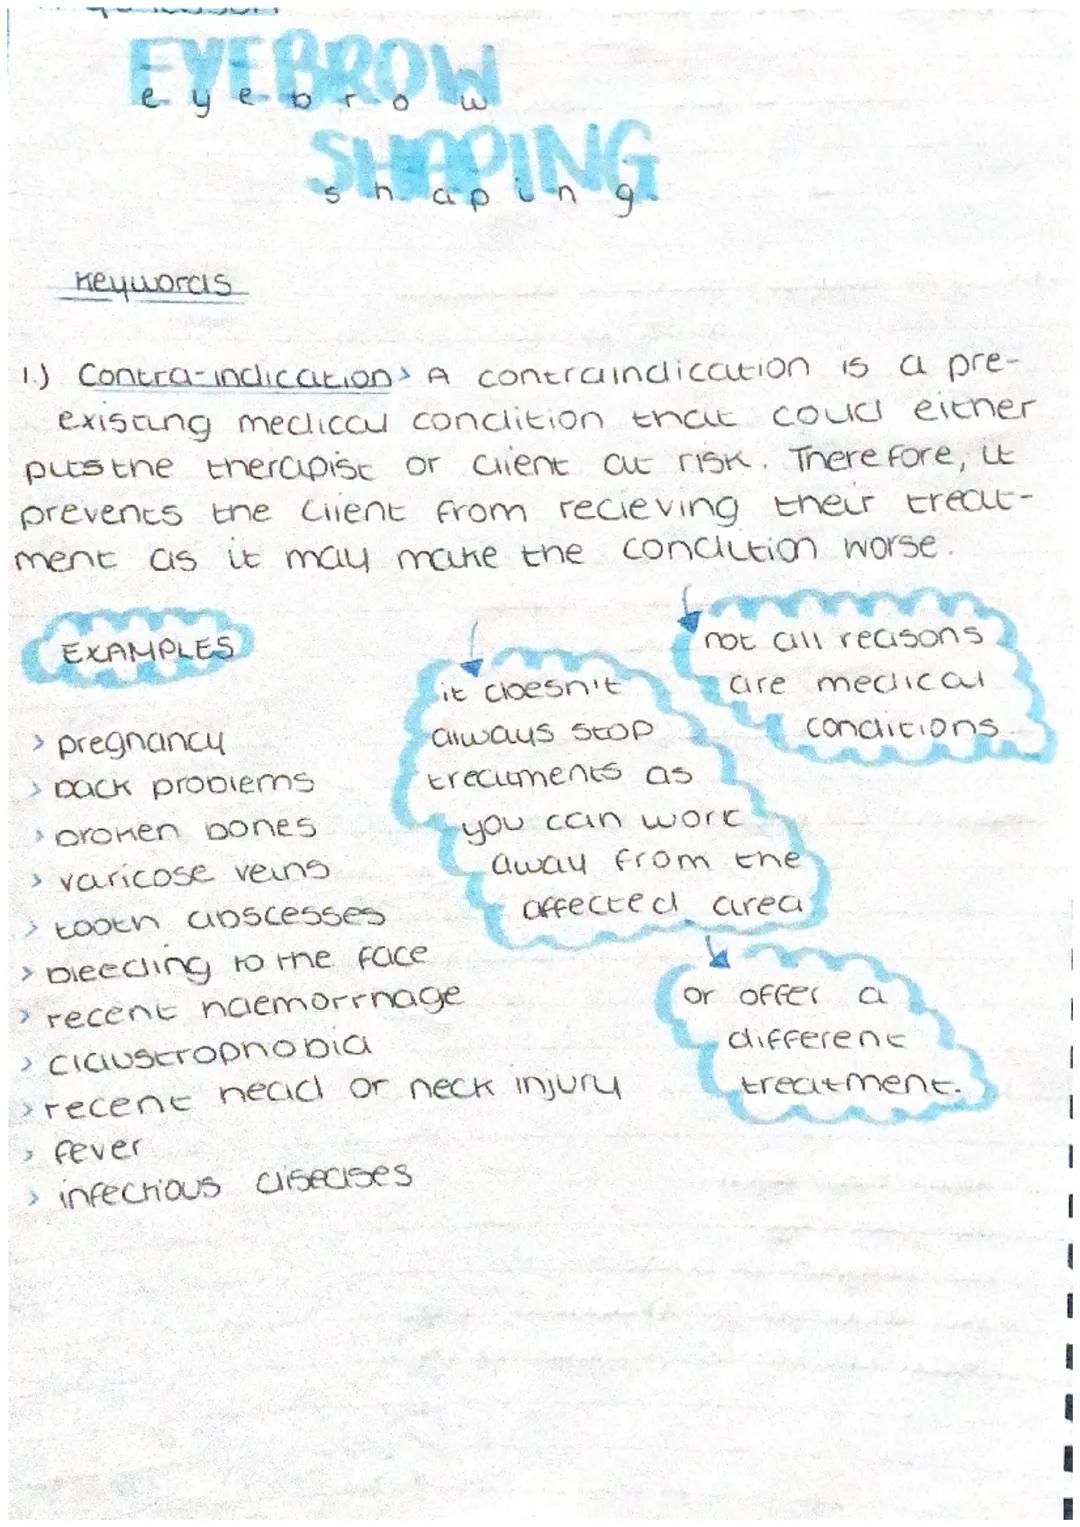 EYEBROW
eyebrow
SHAPING
shaping
Keywords
1.) Contra-indication> A contraindication is a pre-
existing medical condition that coud either
puts the therapist or client at risk. Therefore, it
prevents the client from recieving their treat-
ment as it may make the condition worse.
EXAMPLES
> pregnancy
> back problems
> broken bones
> varicose veins
> tooth abscesses
> bleeding to the face
> recent haemorrhage
> claustrophobia
> recent head or neck injury
> fever
> infectious diseases
it doesn't
always stop
treatments as
you can work
away from the
affected area
not all reasons
are medical
conditions.
or offer a
different
treatment.